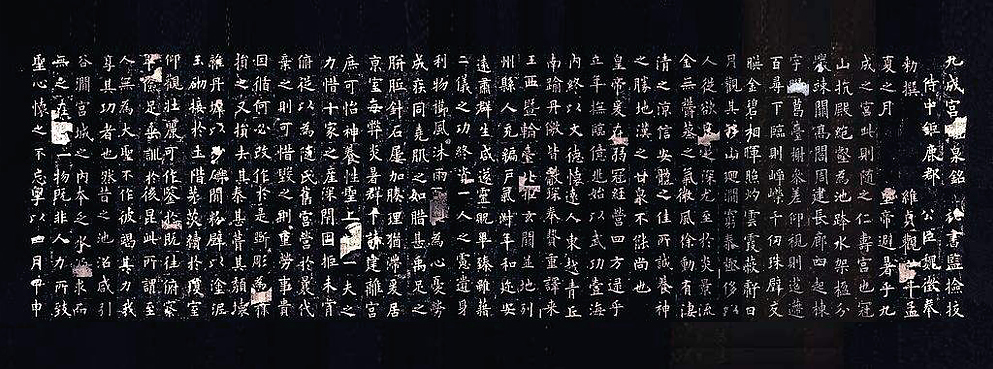 九成宮泉銘 祕書監檢校
侍中鉅鹿郡公臣魏徵奉
勑撰 維貞觀年孟
夏之月 帝避暑乎九
成之宮此則隨之仁壽宮也冠
山抗殿絕壑為池跨水架楹分
巖竦闕高閣周建長廊四起棟
宇膠葛臺榭參差仰視則迢遰
百尋下臨則崢嶸千仞珠璧交
映金碧相暉照灼雲霞蔽虧日
月觀其移山迴澗窮泰極侈以
人從欲良足深尤至於炎景流
金無鬱蒸之氣微風徐動有淒
清之涼信安體之佳所誠養神
之勝地漢之甘泉不能尚也
皇帝爰在弱冠經營四方逮乎
立年撫臨億兆始以武功壹海
內終以文德懷遠人東越青丘
南踰丹徼皆獻琛奉贄重譯來
王西暨輪臺北拒玄闕並地列
州縣人充編戶氣淑年和邇安
遠肅群生咸遂靈貺畢臻雖藉
二儀之功終資一人之慮遺身
利物櫛風沐雨為心憂勞
成疾同堯肌之如腊甚禹足之
胼胝針石屢加腠理猶滯爰居
京室每弊炎暑群下請建離宮
庶可怡神養性聖上一夫之
力惜十家之產深閉固拒未肯
俯從以為隨氏舊宮營於曩代
棄之則可惜毀之則重勞事貴
因循何必改作於是斲彫為樸
損之又損去其泰甚葺其頹壞
雜丹墀以沙礫間粉壁以塗泥
玉砌接於土階茅茨續於瓊室
仰觀壯麗可作鑒於既往俯察
卑儉足垂訓於後昆此所謂至
人無為大聖不作彼竭其力我
享其功者也然昔之池沼咸引
谷澗宮城之內本乏水源求而
無之在一物既非人力所致
聖心懷之不忘粵以四月甲申